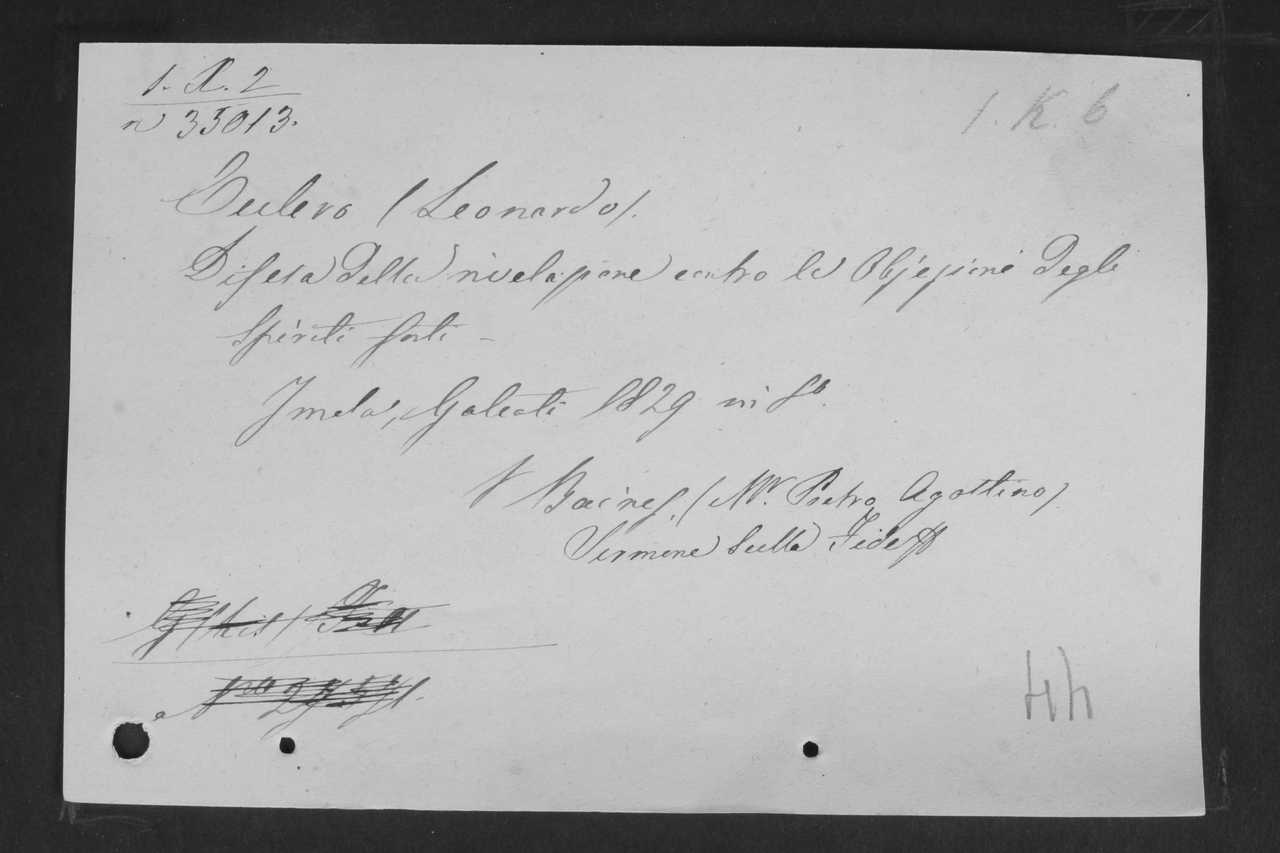 1. X. 2
n 35013.
1. K. 6
Eulero (Leonardo).
Difesa della rivelazione contro le Objezioni degli
Spiriti forti -
Imola, Galeati 1829 in 8º.
V Baines. (Mr. Pietro Agostino)
Sermone sulla Fede &
44